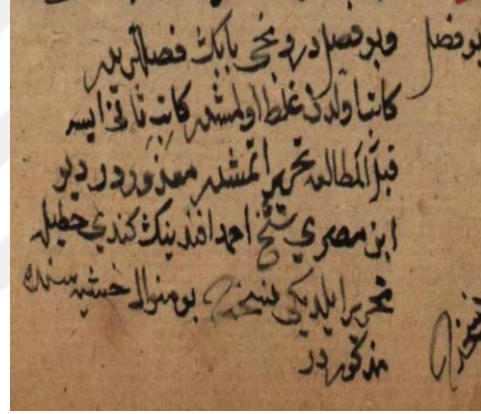 وبو فصل دردنجی بابك فصللریدر
بو فصل
كاتب اولدن غلط اولمشدر كاتب ثانی ایسه
قبل المطالعه تحریر اتمشدر معذوردر دیو
ابن مصری شیخ احمد افندینك كندی خطیله
تحریر ایلدیكی نسخه بو منوال حشیه سنده
مذكوردر